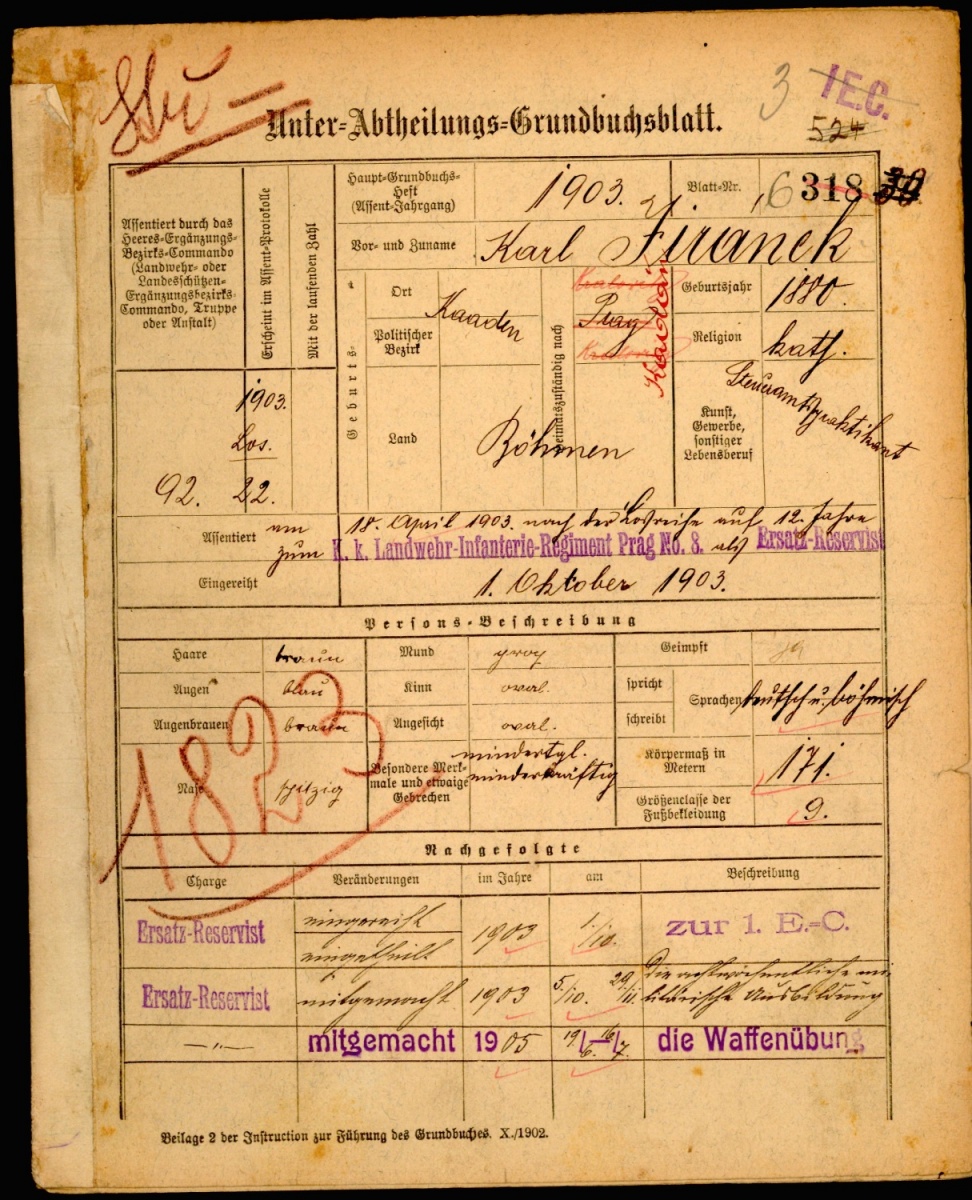 3 1 E.C.
524
Unter-Abtheilungs-Grundbuchsblatt.
Assentiert durch das Heeres-Ergänzungs-Bezirks-Commando (Landwehr- oder Landesschützen-Ergänzungsbezirks-Commando, Truppe oder Anstalt)
Erscheint im Assent-Protokolle
Mit der laufenden Zahl
Haupt-Grundbuchs-Heft (Assent-Jahrgang) 1903. Blatt-Nr. 6 318
Vor- und Zuname Karl Firanek
Geburts-
Ort Kaaden
Politischer Bezirk
Land Böhmen
Heimatszuständig nach
Prag
Geburtsjahr 1880.
Religion kath.
Kunst, Gewerbe, sonstiger Lebensberuf Steueramtspraktikant
1903.
Los.
92. 22.
Assentiert am 18. April 1903. nach der Losreihe auf 12. Jahre
zum K. k. Landwehr-Infanterie-Regiment Prag No. 8. als Ersatz-Reservist
Eingereiht 1. Oktober 1903.
Persons-Beschreibung
Haare braun Mund prop Geimpft ja
Augen blau Kinn oval. spricht schreibt Sprachen deutsch u. böhmisch
Augenbrauen braun Angesicht oval.
Nase spitzig Besondere Merkmale und etwaige Gebrechen mindertgl. minderkräftig Körpermaß in Metern 171.
Größenclasse der Fußbekleidung 9.
1823
Nachgefolgte
Charge Veränderungen im Jahre am Beschreibung
Ersatz-Reservist eingereiht eingetheilt 1903 1/10. zur 1. E.-C.
Ersatz-Reservist mitgemacht 1903 5/10. 29/11. die achtwöchentliche militärische Ausbildung
—"— mitgemacht 1905 19/6.–16/7. die Waffenübung
Beilage 2 der Instruction zur Führung des Grundbuches. X./1902.